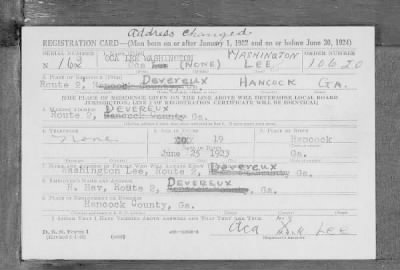 Address changed
REGISTRATION CARD—(Men born on or after January 1, 1922 and on or before June 30, 1924)
SERIAL NUMBER 1. NAME ORDER NUMBER
OCA LEE WASHINGTON WASHINGTON
N 162 Oca (NONE) LEE 10620
2. PLACE OF RESIDENCE (Print)
DEVEREUX HANCOCK GA.
Route 2,
[THE PLACE OF RESIDENCE GIVEN ON THE LINE ABOVE WILL DETERMINE LOCAL BOARD
JURISDICTION; LINE 2 OF REGISTRATION CERTIFICATE WILL BE IDENTICAL]
3. MAILING ADDRESS
DEVEREUX
Route 2, Hancock County Ga.
4. TELEPHONE 5. AGE IN YEARS 6. PLACE OF BIRTH
None 19 Hancock
DATE OF BIRTH
June 25 1923 Ga.
7. NAME AND ADDRESS OF PERSON WHO WILL ALWAYS KNOW YOUR ADDRESS
Devereux
Washington Lee, Route 2, Ga.
8. EMPLOYER'S NAME AND ADDRESS
DEVEREUX
Route 2, Ga.
9. PLACE OF EMPLOYMENT OR BUSINESS
Hancock County, Ga.
I AFFIRM THAT I HAVE VERIFIED ABOVE ANSWERS AND THAT THEY ARE TRUE.
Oca LEE
D. S. S. Form 1